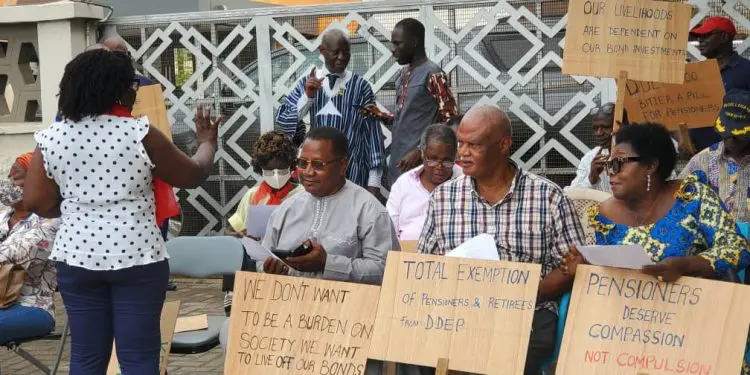 OUR LIVELIHOODS
ARE DEPENDENT ON
OUR BOND INVESTMENTS
BITTER A PILL
FOR PENSIONERS
WE DONT WANT
TO BE A BURDEN ON
SOCIETY. WE WANT
TO LIVE OFF OUR BONDS
TOTAL EXEMPTION
OF PENSIONERS & RETIREES
FROM D-DEP
PENSIONERS
DESERVE
COMPASSION
NOT COMPULSION